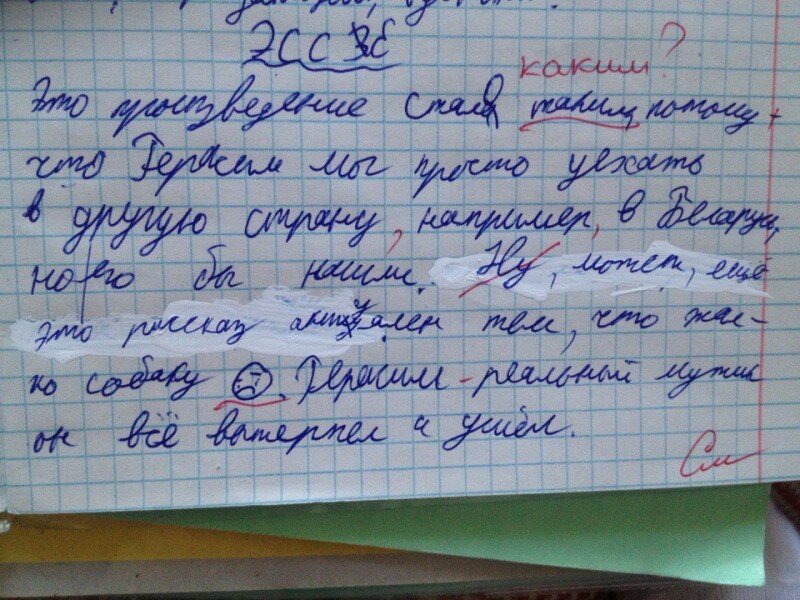 ЭССЕ
каким?
Это произведение стало таким, потому
что Герасим мог просто уехать
в другую страну, например, в Беларусь,
но его бы нашли. Ну, может, ещё
это рассказ актуален тем, что жал-
ко собаку. Герасим - реальный мужик
он всё вытерпел и ушёл.
См